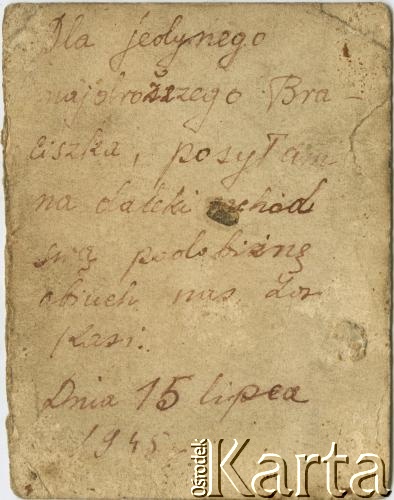 Dla jedynego
najdroższego Bra-
ciszka, posyłam
na daleki wchód
swą podobiznę
abiuch nas Los
skasi.
Dnia 15 lipca
1945
Ośrodek
Karta